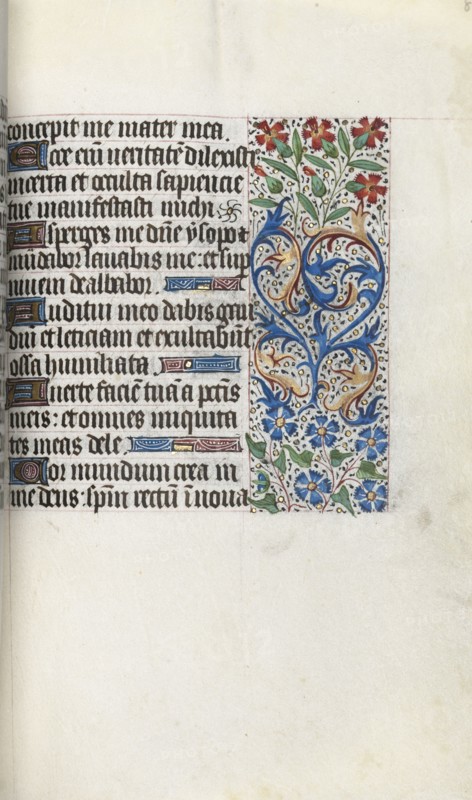 concepit me mater mea.
Ecce eni ueritatē dilexisti
incerta et occulta sapiencie
tue manifestasti michi
Asperges me dñe ysopo t
mūdabor lauabis me: et sup
niuem dealbabor.
Auditui meo dabis gau
diū et leticiam et exultabūt
ossa humiliata.
Auerte faciē tuā a pctīs
meis: et omnes iniquita
tes meas dele.
Cor mundum crea in
me deus: spm̄ rectū ī noua